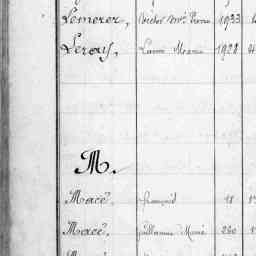 Lemerer, Victor Me Pierre 1933
Leroux, Louis Marie 1928 4
M.
Macé, François 11 1
Macé, Guillaume Marie 280 1